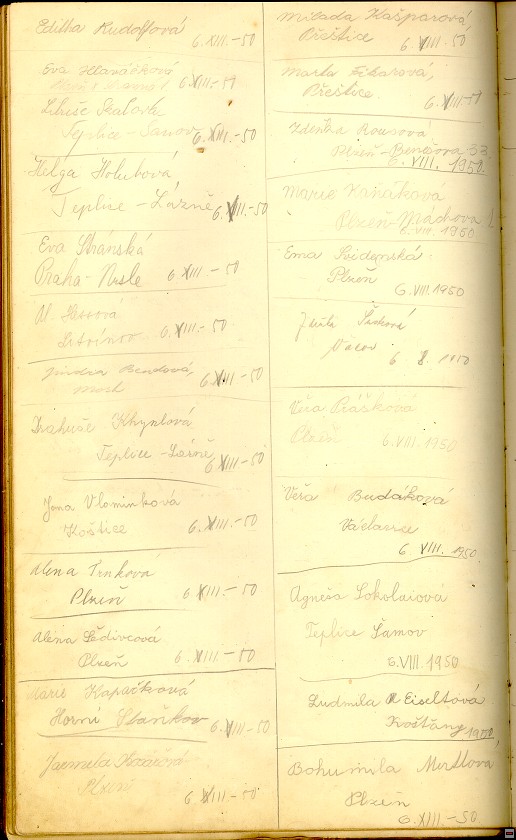 Editha Rudolfová
6.XIII.-50
Eva Hlaváčková
6.XIII-51
Libuše
Teplice-Šanov 6.XIII.-50
Helga Holubová
Teplice-Lázně 6.XIII.-50
Eva Stránská
Praha-Nusle 6.XIII.-50
Hessová
Litvínov 6.XIII.-50
Bendová,
Most 6.XIII-50
Drahuše Khynlová
Teplice-Lázně
6.XIII-50
Jana Vlaminková
Koštice 6.XIII.-50
Alena Trnková
Plzeň 6.XIII.-50
Alena Šedivcová
Plzeň 6.XIII.-50
Marie Kopačková
Horní Staňkov 6.XIII-50
Jarmila
Plzeň
6.XIII-50
Milada Kašparová
Přeštice 6.VIII.50
Marta
Přeštice 6.XIII-51
Zdeňka Rousová
Plzeň-Benešova 33
6.VIII.1950.
Marie Kaňáková
Plzeň-Máchova
6.VIII.1950
Ema Svidenská
Plzeň
6.VIII.1950
6 8. 1950
Věra Prášková
Plzeň 6.VIII.1950
Věra Budáková
6 VIII. 1950.
Agneša Sokolaiová
Teplice Šanov
6.VIII.1950
Ludmila Eiseltová
Košťany 1950,
Bohumila Merllová
Plzeň
6.XIII-50.